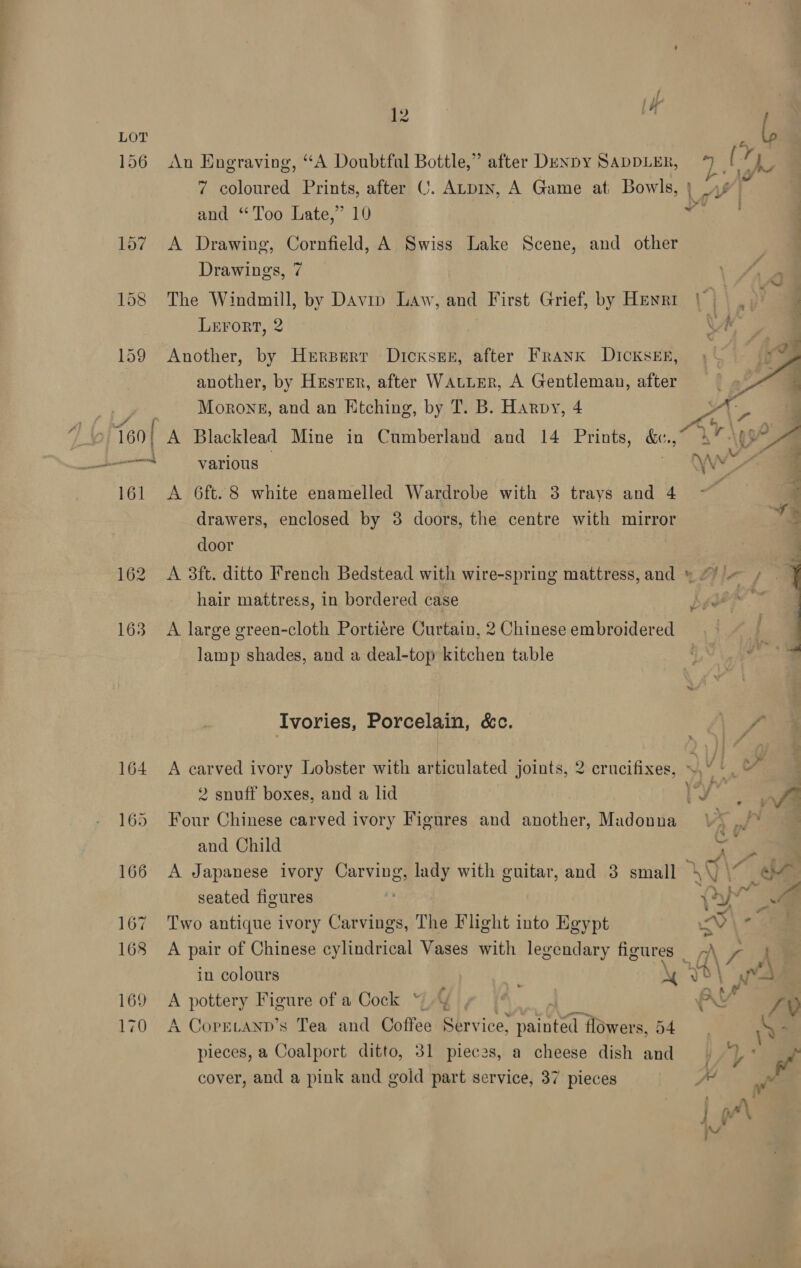 12
LOT
156 An Engraving, “A Doubtful Bottle,” after Dendy Saddler,
7 coloured Prints, after C. Aldin, A Game at Bowls,
and “Too Late,” 10
157 A Drawing, Cornfield, A Swiss Lake Scene, and other
Drawings, 7
158 The Windmill, by David Law, and First Grief, by Henri
Lefort, 2
159 Another, by Herbert Dicksee, after Frank Dicksee,
another, by Hester, after Waller, A Gentleman, after
Morone, and an Etching, by T. B. Hardy, 4
160 A Blacklead Mine in Cumberland and 14 Prints, &c.,
various
161 A 6ft. 8 white enamelled Wardrobe with 3 trays and 4
drawers, enclosed by 3 doors, the centre with mirror
door
162 A 3ft. ditto French Bedstead with wire-spring mattress, and
hair mattress, in bordered case
163 A large green-cloth Portière Curtain, 2 Chinese embroidered
lamp shades, and a deal-top kitchen table
Ivories, Porcelain, &c.
164 A carved ivory Lobster with articulated joints, 2 crucifixes,
2 snuff boxes, and a lid
165 Four Chinese carved ivory Figures and another, Madonna
and Child
166 A Japanese ivory Carving, lady with guitar, and 3 small
seated figures
167 Two antique ivory Carvings, The Flight into Egypt
168 A pair of Chinese cylindrical Vases with legendary figures
in colours
169 A pottery Figure of a Cock
170 A Copeland’s Tea and Coffee Service, painted flowers, 54
pieces, a Coalport ditto, 31 pieces, a cheese dish and
cover, and a pink and gold part service, 37 pieces